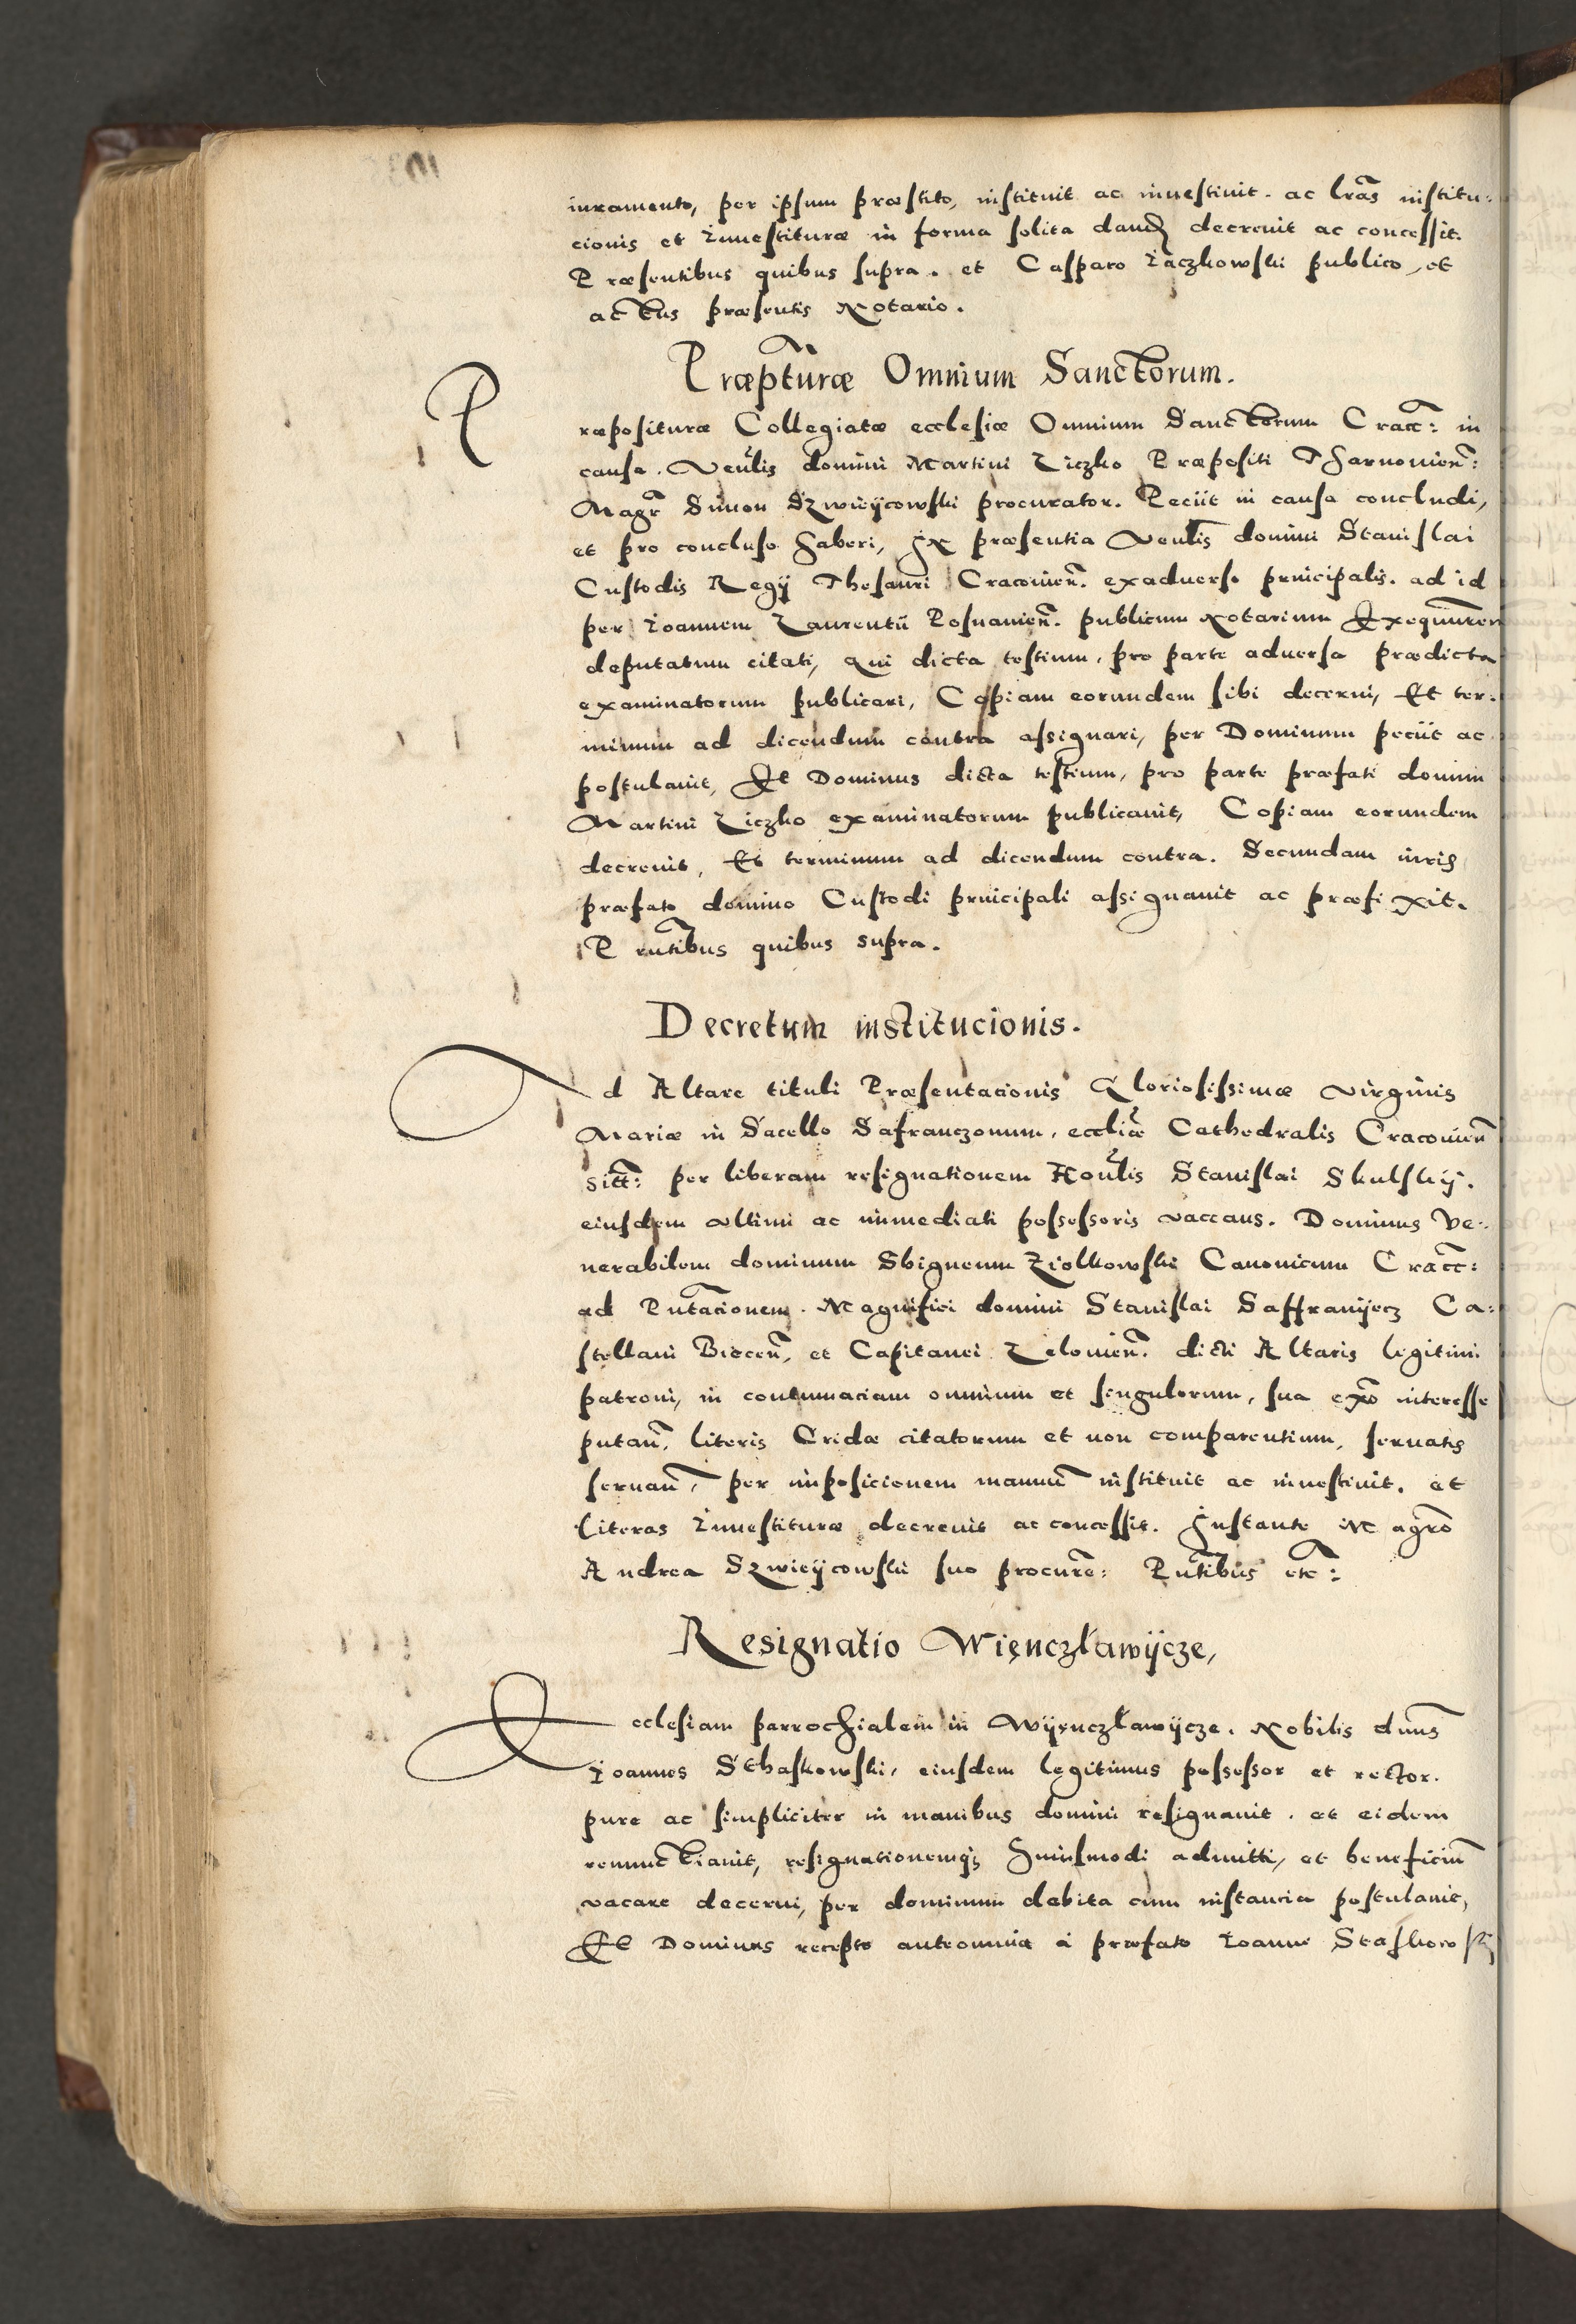 iuramento, per ipsum præstito, instituit ac inuestiuit. ac lrãs institu:
cionis et Inuestituræ in forma solita dand decreuit ac concessit.
Præsentibus quibus supra. et Casparo Iaczkowski publico, et
actus præsentis Notario.
Præptũræ Omnium Sanctorum.
Præposituræ Collegiatæ ecclesiæ Omnium Sanctorum Cracc̃: in
causa. Venlis domini Martini Liczko Præpositi Tharnouien̄:
Magr̃ Simon Szwieÿcowski procurator. Peciit in causa concludi,
et pro concluso haberi, In præsentia Venlis domini Stanislai
Custodis Regÿ Thesauri Cracouien̄. exaduerso principalis. ad id
per Ioannem Laurentii Posnanien̄. publicum Notarium
deputatum citati, qui dicta testium, pro parte aduersa prædicta
examinatorum publicari, Copiam eorundem sibi decerni, Et ter:
minum ad dicendum contra assignari, per Dominum peciit ac
postulauit, Et Dominus dicta testium, pro parte præfati domini
Martini Liczko examinatorum publicauit, Copiam eorundem
decreuit, Et terminum ad dicendum contra. Secundam iuris
præfato domino Custodi principali assignauit ac præfixit.
Pñtibus quibus supra.
Decretum institucionis.
Ad Altare tituli Præsentacionis Gloriosissimæ Virginis
Mariæ in Sacello Safranczonum, eccliæ Cathedralis Cracouien̄
sitt̃: per liberam resignationem Honlis Stanislai Skulskÿ.
eiusdem vltimi ac immediati possessoris vaccans. Dominus Ve:
nerabilem dominum Sbigneum Ziolkowski Canonicum Cracc̃:
ad Pñtacionem. Magnifici domini Stanislai Saffranÿecz Ca:
stellani Biecen̄, et Capitanei Lelouien̄. dicti Altaris legitimi
patroni, in contumaciam omnium et singulorum, sua ex̃o interesse
putan̄, literis Cridæ citatorum et non comparentium, seruatis
seruan̄, per imposicionem manuũ instituit ac inuestiuit. et
literas Inuestituræ decreuit ac concessit. Instante Magrõ
Andrea Szwieÿcowski suo procurẽ: Pñtibus etc̃:
Resignatio Więnczławÿcze,
Ecclesiam parrochialem in Wÿęnczławÿcze. Nobilis dnus
Ioannes Sthaskowski, eiusdem legitimus possessor et rector.
pure ac simpliciter in manibus domini resignauit. et eidem
renunctiauit, resignationemqȝ huiusmodi admitti, et beneficiũ
vacare decerni, per dominum debita cum instancia postulauit,
Et Dominus recepto anteomnia à præfato Ioanne Staskowski